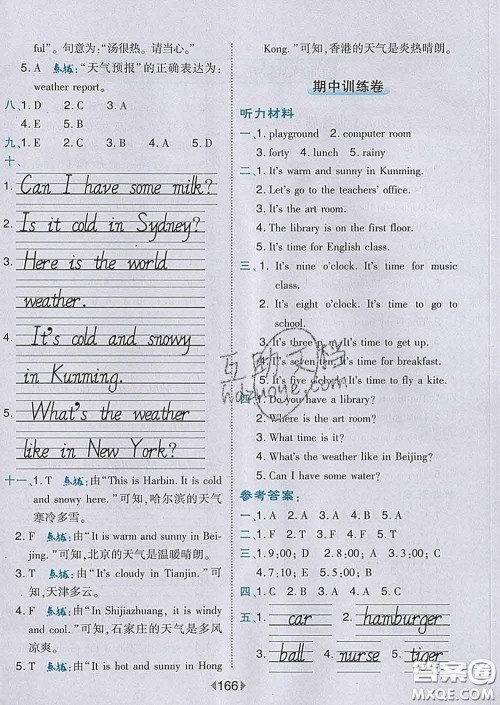 ful”。句意为：“汤很热。请当心。”
5. A 点拨：“天气预报”的正确表达为：
weather report.
八、1. D 2. C 3. C
4. E 5. B
九、1. B 2. E 3. C 4. A 5. D
十、
1. Can I have some milk?
2. Is it cold in Sydney?
3. Here is the world
weather.
4. It's cold and snowy
in Kunming.
5. What's the weather
like in New York?
十一、1. T 点拨：由“This is Harbin. It is cold
and snowy here.”可知，哈尔滨的天气
寒冷多雪。
2. F 点拨：由“It is warm and sunny in Bei-
jing.”可知，北京的天气是温暖晴朗。
3. T 点拨：由“It's cloudy in Tianjin.”可
知，天津多云。
4. F 点拨：由“In Shijiazhuang, it is windy
and cool.”可知，石家庄的天气是多风
凉爽。
5. T 点拨：由“It is hot and sunny in Hong
Kong.”可知，香港的天气是炎热晴朗。
期中训练卷
听力材料
一、1. playground 2. computer room
3. forty 4. lunch 5. rainy
二、1. It's warm and sunny in Kunming.
2. Let's go to the teachers' office.
3. It's the art room.
4. The library is on the first floor.
5. It's time for English class.
三、1. It's nine o'clock. It's time for music
class.
2. It's three o'clock. It's time to go to
school.
3. It's three p.m. It's time for PE class.
4. It's seven ten. It's time for breakfast.
5. It's five o'clock. It's time to fly a kite.
四、1. Do you have a library?
2. Where is the art room?
3. What are they?
4. What's the weather like in Beijing?
5. Can I have some water?
参考答案：
一、1. A 2. A 3. B 4. B 5. A
二、
三、1. 9:00; D 2. 3:00; B 3. 3:00; C
4. 7:10; E 5. 5:00; A
四、1. C 2. C 3. A 4. C 5. C
五、1. car 2. hamburger
3. ball 4. nurse 5. tiger
166
互助文档
hdzhome.com
答案圈
MXQE.COM